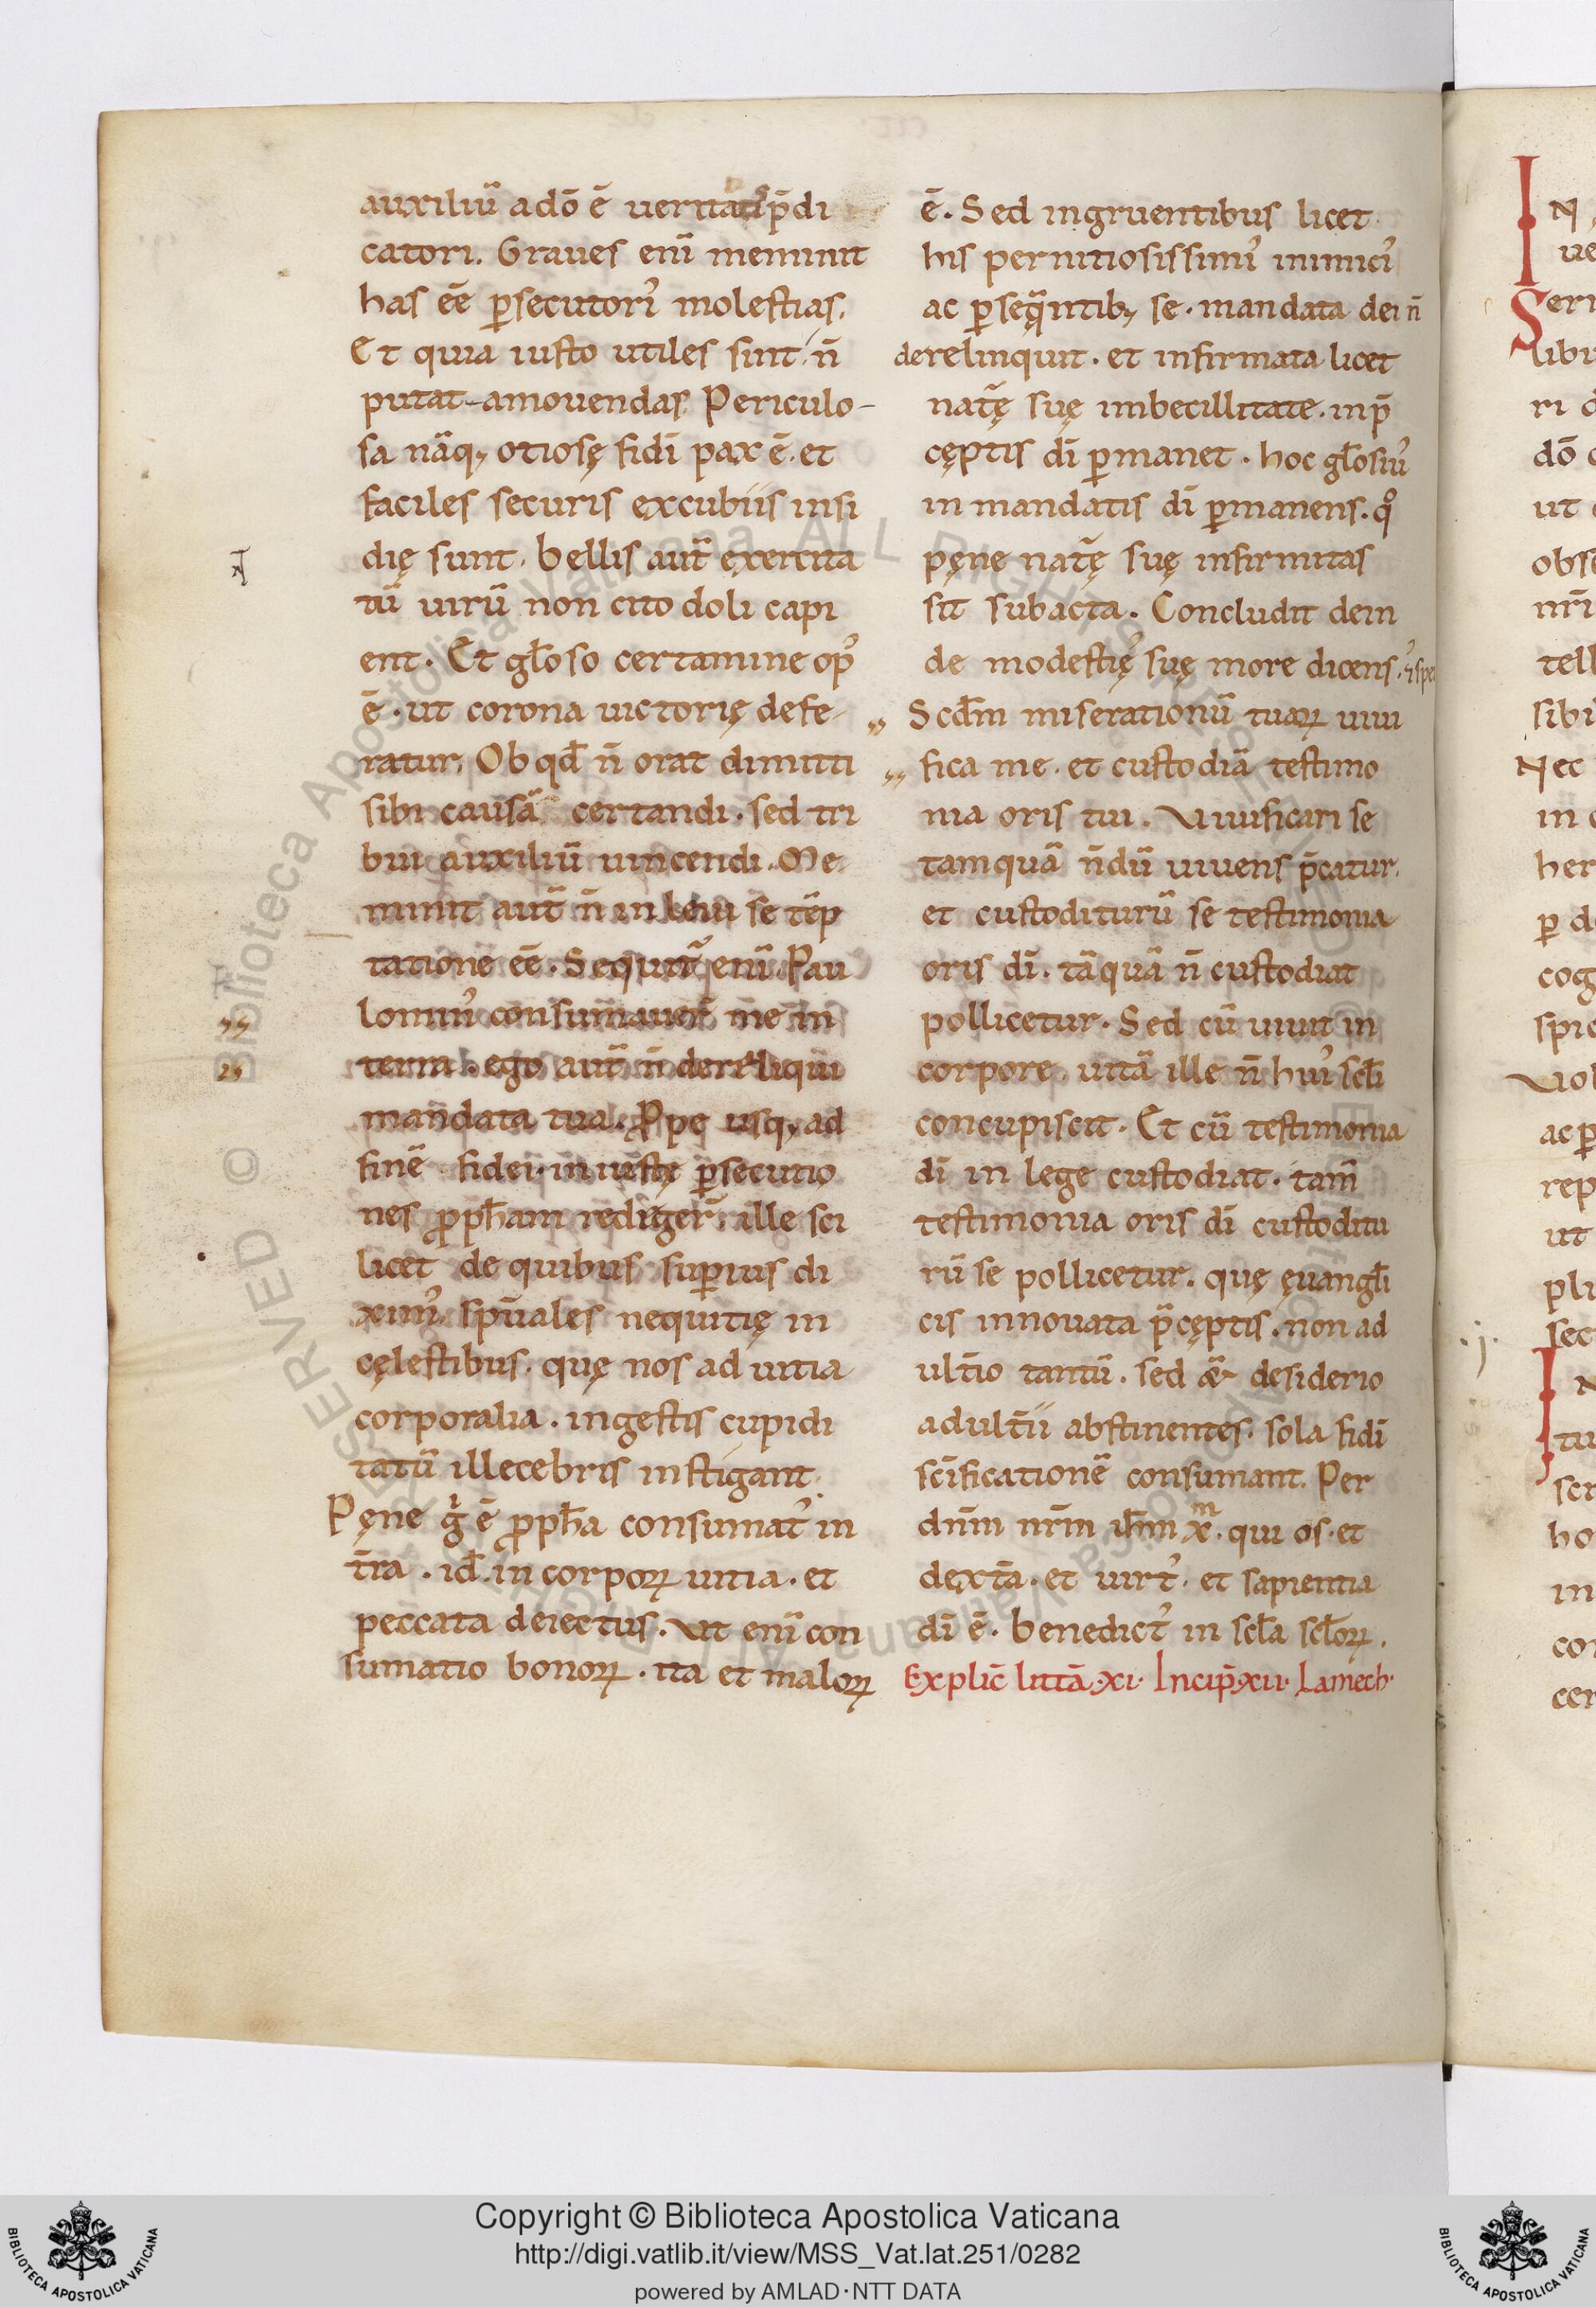 auxiliū adō ē ueritatis p̄di
catori. Graues enī meminit
has eē ꝑsecutorꝰ molestias.
Et quia iusto utiles sint n̄
putat amouendas. Periculo-
sa nāq; otiosę fidī pax ē. et
faciles securis excubiis insi
dię sunt. bellis aut̄ exercita
tū uirū non cito doli capi
ent. Et gl̄oso certamine opꝰ
ē. ut corona uictorię defe-
ratur. Ob qd̄ n̄ orat dimitti
sibi causā certandi. sed tri
bui auxiliū uincendi. Me
minit aut̄ n̄ in leui se tēp
tatione eē. Sequit᷑ enī. Pau
lominꝰ consumauer̄ me in
terra. ego aut̄ n̄ dereliqui
mandata tua. Ꝓpe usq; ad
finē fidei. iniustę ꝑsecutio
nes ꝓph̄am rediger̄. ille sci
licet de quibus suꝑius di
ximꝰ. spūales nequitię in
cęlestibus. quę nos ad uitia
corporalia. ingestis cupidi
tatū illecebris instigant.
Pęne gͥ ē ꝓph̄a consumatꝰ in
t̄ra. id̄. in corporꝝ uitia. et
peccata deiectus. Ut enī con
sumatio bonorꝝ. ita et malorꝝ
ē. Sed ingruentibus licet
his pernitiosissimꝰ inimicꝰ
ac ꝑseq̄ntib; se. mandata dei n̄
derelinquit. et infirmata licet
nat̄ę suę imbecillitate. in p̄
cęptis dī ꝑmanet. hoc gl̄osiuꝰ
in mandatis dī ꝑmanens. qͦ
pęne nat̄ę suę infirmitas
sit subacta. Concludit dein
de modestię suę more dicens.
„ Scd̄m miserationū tuarꝝ uiui
„ fica me. et custodiā testimo
nia oris tui. Uiuificari se
tamquā n̄dū uiuens p̄catur.
et custoditurū se testimonia
oris dī. tāquā n̄ custodiat
pollicetur. Sed cū uiuit in
corpore. uitā ille n̄ huiꝰ scl̄i
concupiscit. Et cū testimonia
dī in lege custodiat. tam̄
testimonia oris dī custoditu
rū se pollicetur. quę ęuangl̄i
cis innouata p̄cęptis. non ad
ult̄io tantū. sed & desiderio
adult̄ii abstinentes. sola fidī
sc̄ificationē consumant. Per
dn̄m nr̄m ih̄m xᵐ. qui os. et
dext̄a. et uirtꝰ. et sapientia
dī ē. benedictꝰ in scl̄a scl̄orꝝ.
Explic̄ littā. xi. Incip̄. xii. Lamech.
Copyright © Biblioteca Apostolica Vaticana
http://digi.vatlib.it/view/MSS_Vat.lat.251/0282
powered by AMLAD · NTT DATA
BIBLIOTECA APOSTOLICA VATICANA
BIBLIOTECA APOSTOLICA VATICANA